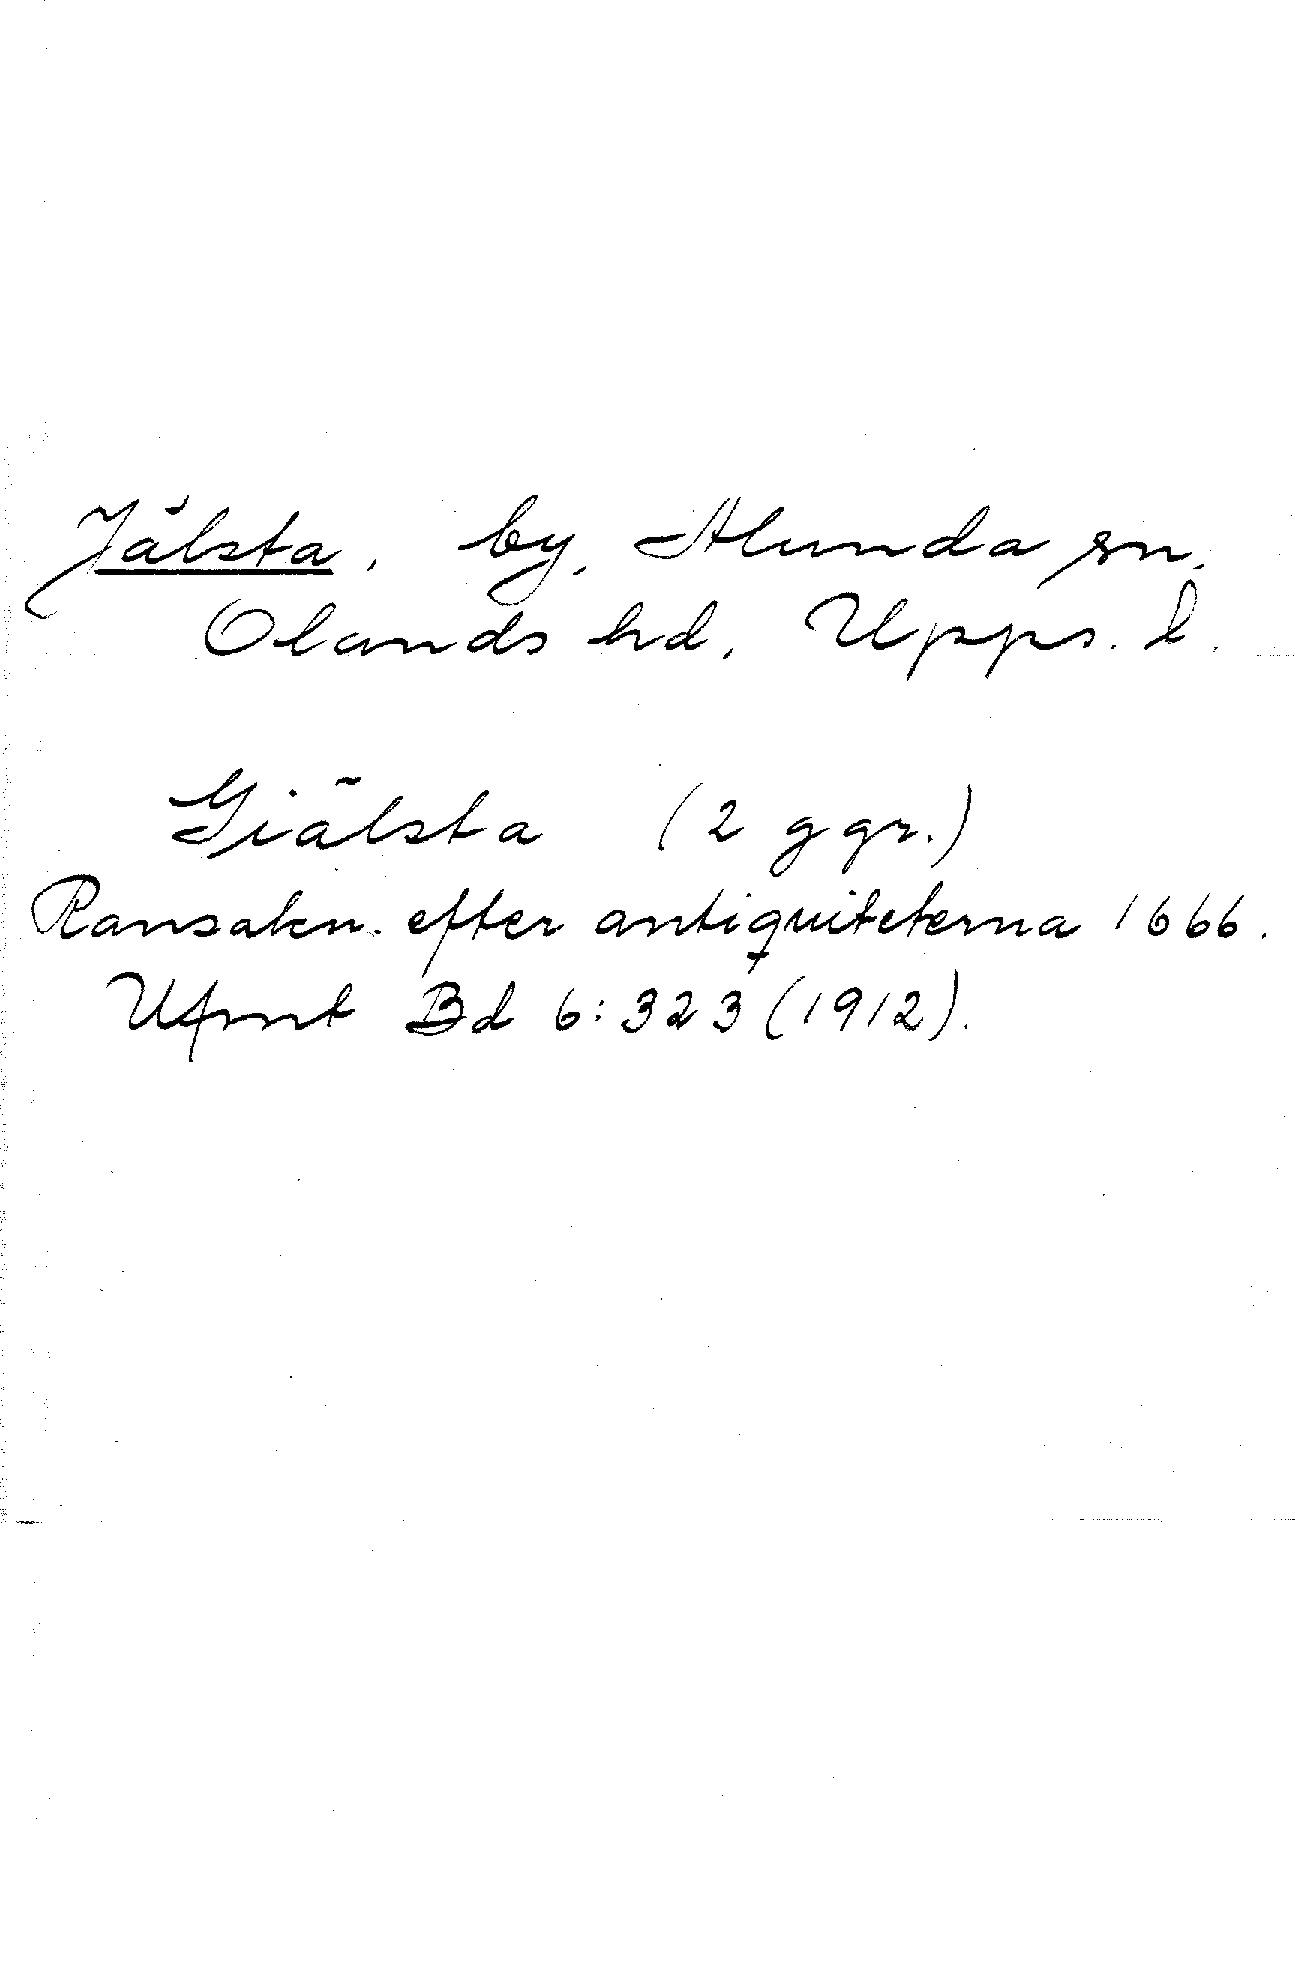 Jälsta, by, Alunda sn.
Olands hd, Upps. l.
Giälsta (2 ggr.)
Ransakn. efter antiquiteterna 1666.
Ufmt Bd 6:323 (1912).